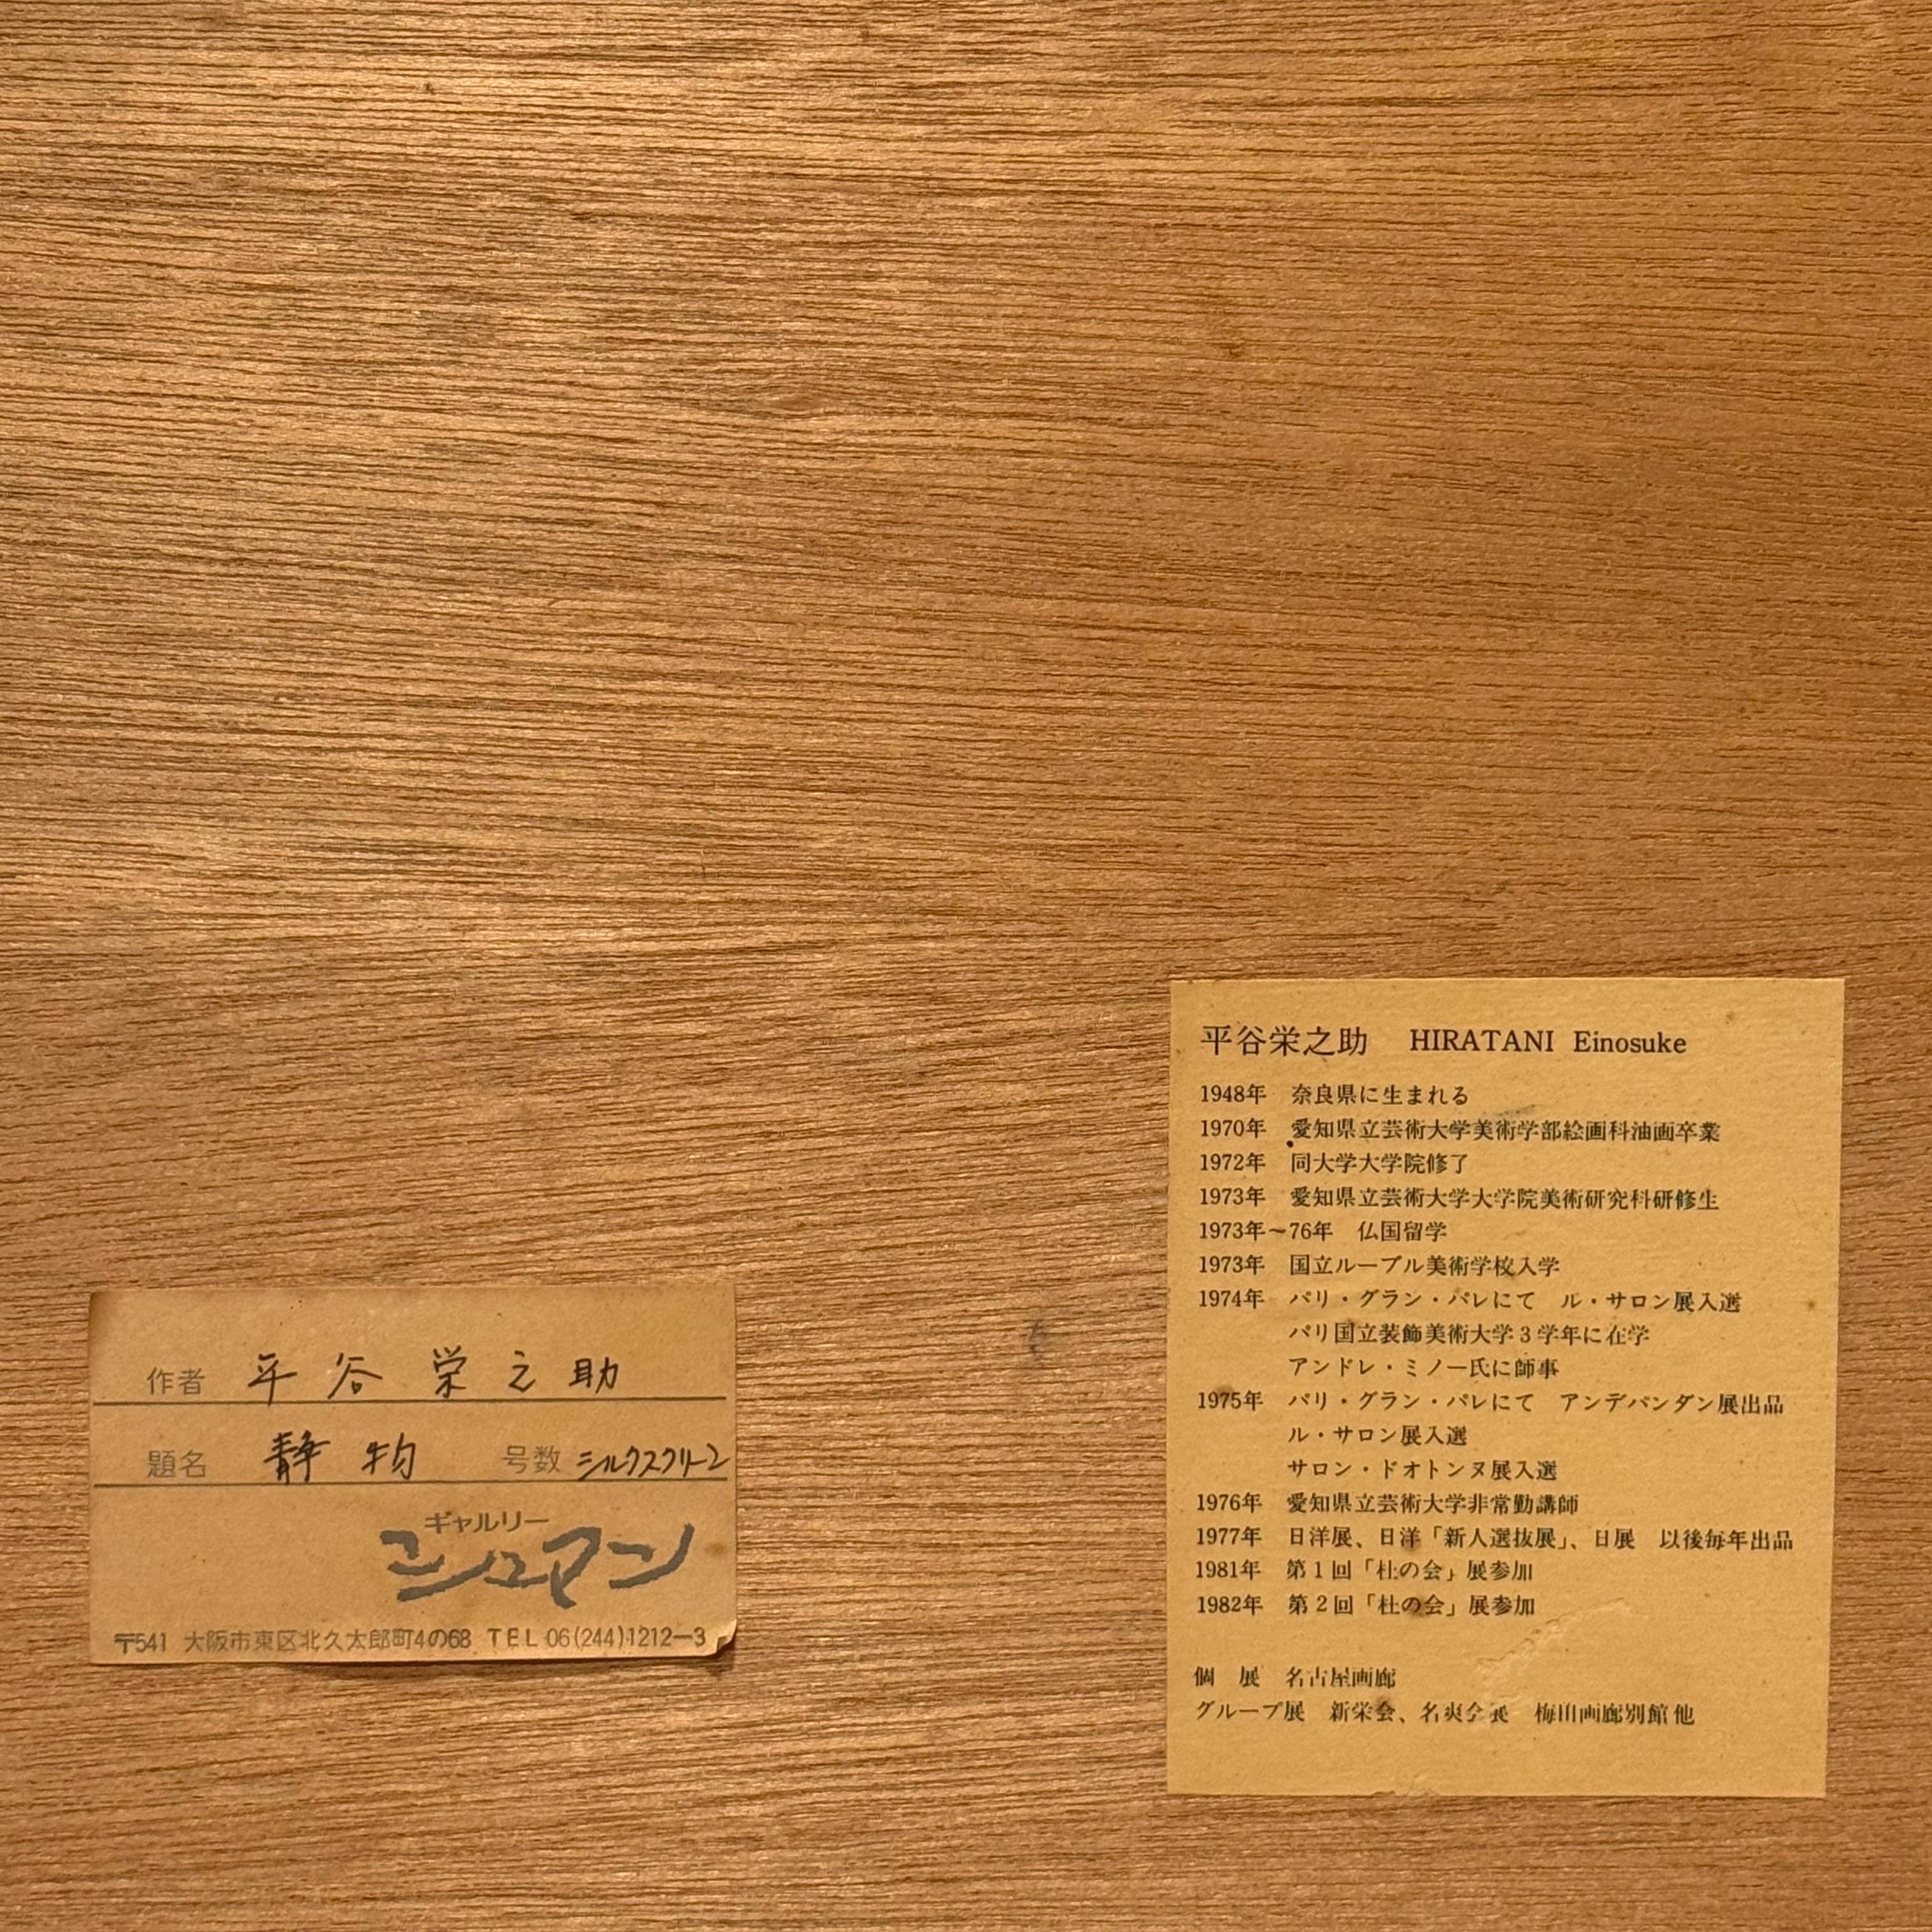 作者 平谷栄之助
題名 静物 号数 シルクスクリーン
ギャルリー
シュマン
〒541 大阪市東区北久太郎町4の68 TEL 06(244)1212-3
平谷栄之助 HIRATANI Einosuke
1948年 奈良県に生まれる
1970年 愛知県立芸術大学美術学部絵画科油画卒業
1972年 同大学大学院修了
1973年 愛知県立芸術大学大学院美術研究科研修生
1973年~76年 仏国留学
1973年 国立ルーブル美術学校入学
1974年 パリ・グラン・パレにて ル・サロン展入選
パリ国立装飾美術大学3学年に在学
アンドレ・ミノー氏に師事
1975年 パリ・グラン・パレにて アンデパンダン展出品
ル・サロン展入選
サロン・ドオトンヌ展入選
1976年 愛知県立芸術大学非常勤講師
1977年 日洋展、日洋「新人選抜展」、日展 以後毎年出品
1981年 第1回「杜の会」展参加
1982年 第2回「杜の会」展参加
個 展 名古屋画廊
グループ展 新栄会、名爽会展 梅田画廊別館他